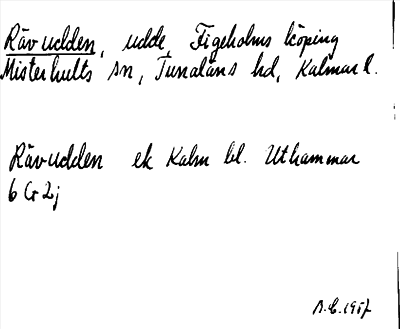 Rävudden, udde, Figeholms köping
Misterhults sn, Tunaläns hd, Kalmar l.
Rävudden ek Kalm bl. Uthammar
6 G 2j
1957